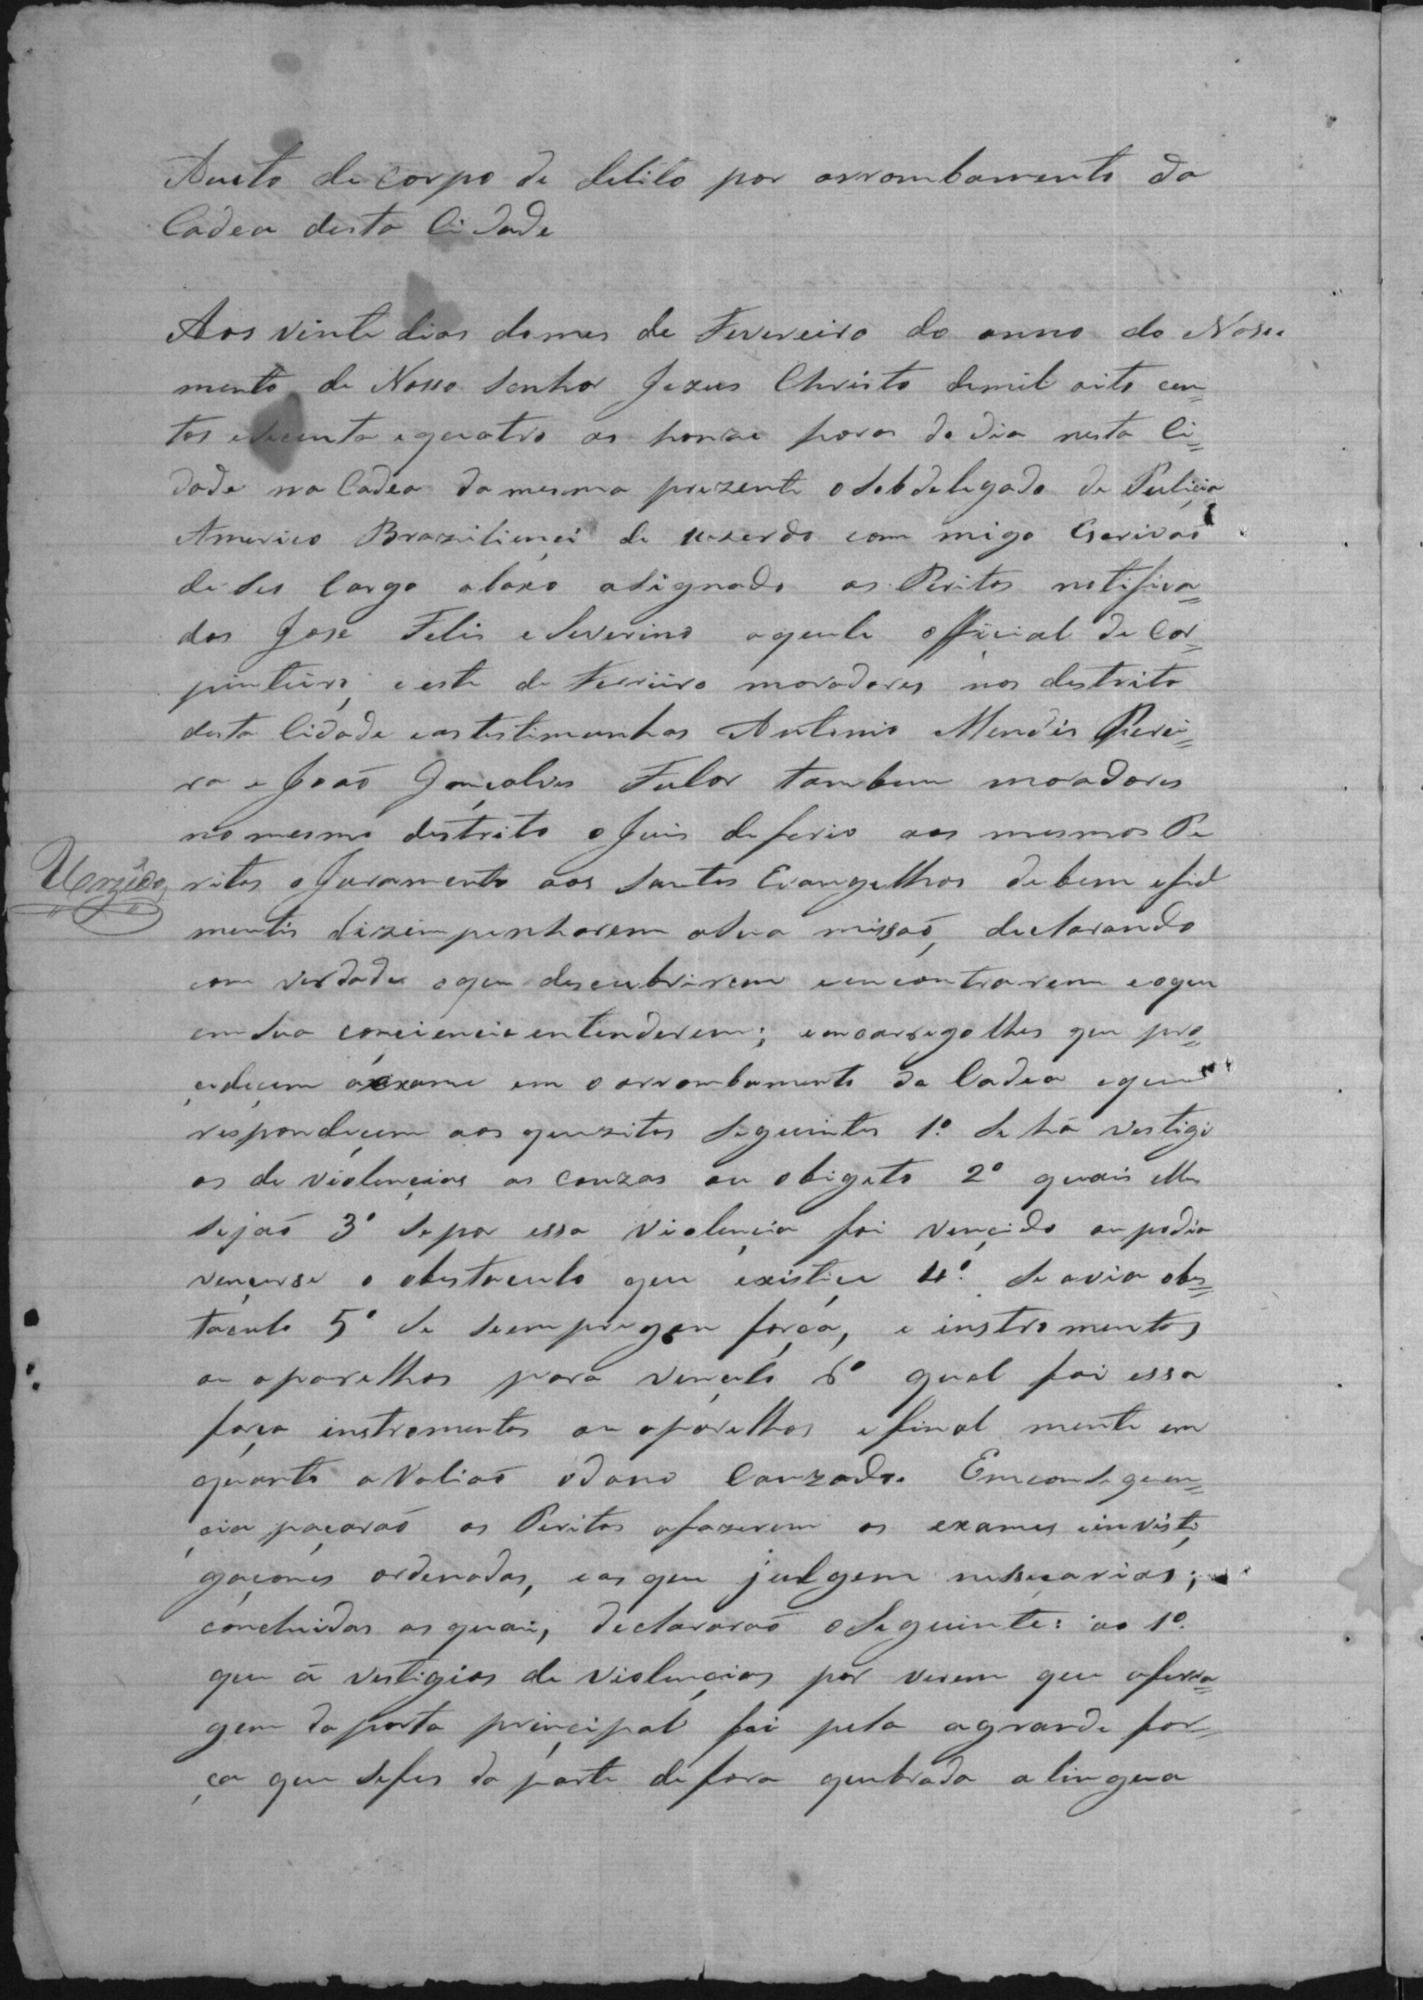 Aucto de corpo de delito por arrombamento da
Cadea desta Cidade
Aos vinte dias do mes de Fevereiro do anno do Nasci
mento de Nosso Senhor Jezus Christo de mil oito cen=
tos e secenta e quatro as honze horas do dia nesta Ci=
dade na Cadea da mesma prezente o Sobdelegado de Pulicia
Americo Braziliense de com migo Escrivaõ
de seu Cargo abaxo asignado os Peritos notifica=
dos José Felis e Severino aquele official de Car=
pinteiro, e este de Ferreiro moradores nos destrito
desta Cidade e as testimunhas Antonio Mendes Perei=
ra e Joaõ Gonçalves Fulor tambem moradores
no mesmo destrito o Juis deferio aos mesmos Pe
ritos o Juramento aos Santos Evangelhos de bem e fiel
mentis dizempenharem a Sua missaõ, declarando
com verdade o que descubrirem e encontrarem e o que
em Sua conciencia entenderem; e encarregolhes que pro=
cedecem a exame em o arrombamento da Cadea e que
respondecem aos quezitos Seguintes 1º Se há vestigi
os de violençias as couzas ou obigeto 2º quais elles
Sejaõ 3º Se por essa violençia foi vençido ou podia
vençerse o obestaculo que existiçe 4º Se avia obes=
taculo 5º Se Se empregou força, e instromentos
ou aparelhos para vençelo 6º qual foi essa
força instromentos ou aparelhos e final mente em
quanto avaliaõ o dano Cauzado. Em conseguen=
çia paçaraõ os Peritos a fazerem os exames e investi
gaçones ordenadas, e as que julgem nesseçarias;
concluidas as quais, declararaõ o Seguinte: ao 1º
que á vestigios de violençias por verem que a ferra=
gem da porta prinçipal foi pela a grande for=
ça que se fes da parte de fora quebrada a lingua